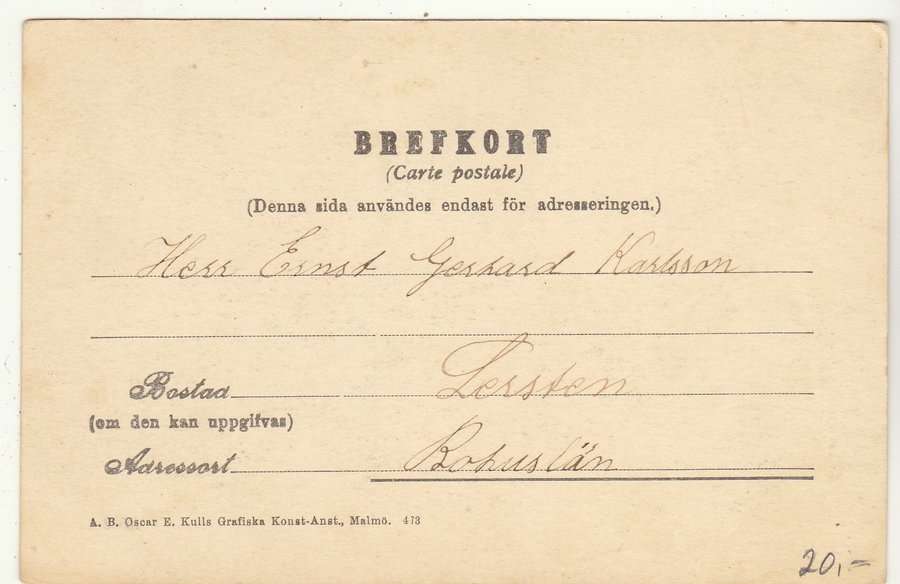 BREFKORT
(Carte postale)
(Denna sida användes endast för adresseringen.)
Herr Ernst Gerhard Karlsson
Bostad Lersten
(om den kan uppgifvas)
Adressort Bohuslän
A. B. Oscar E. Kulls Grafiska Konst-Anst., Malmö. 473
20,-